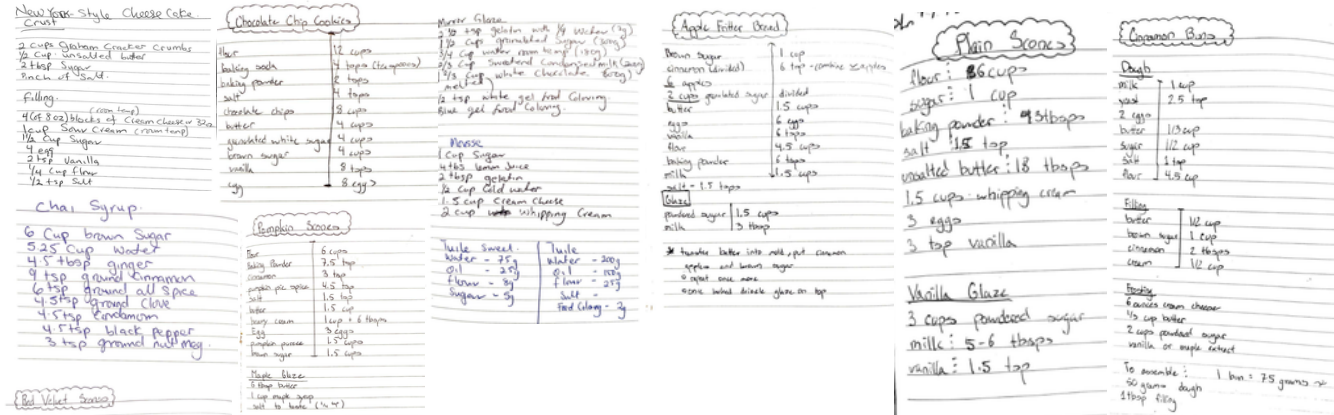 New York-Style Cheese Cake.
Crust
2 cups Graham Cracker Crumbs
1/2 Cup unsalted butter
2 tbsp Sugar
Pinch of Salt.
Filling.
(room temp)
4 (of 8oz) blocks of Cream Cheese or 32oz
1 cup Sour Cream (room temp)
1 1/2 Cup Sugar
4 egg
2 tsp Vanilla
1/4 Cup flour
1/2 tsp Salt
Chai Syrup.
6 Cup brown Sugar
5.25 Cup Water
4.5 tbsp ginger
9 tsp ground Cinnamon
6 tsp ground all Spice
4.5 tsp ground Clove
4.5 tsp Cardamom
4.5 tsp black pepper
3 tsp ground nutmeg.
Red Velvet Scones
Chocolate Chip Cookies
flour 12 cups
baking soda 4 tspps (teaspoons)
baking powder 2 tspps
salt 4 tspps
chocolate chips 8 cups
butter 4 cups
granulated white sugar 4 cups
brown sugar 4 cups
vanilla 8 tspps
egg 8 eggs
Pumpkin Scones
flour 6 cups
Baking Powder 7.5 tsp
cinnamon 3 tsp
pumpkin pie spice 4.5 tsp
salt 1.5 tsp
butter 1.5 cup
heavy cream 1 cup + 6 tbsps
Egg 3 eggs
pumpkin puree 1.5 cups
brown sugar 1.5 cups
Maple Glaze
6 tbsp butter
1 cup maple syrup
salt to taste
Mirror Glaze
2 1/2 tsp gelatin with 1/4 Water
1 1/2 cups granulated Sugar (300g)
3/4 Cup water room temp (180g)
2/3 Cup Sweetend Condensed milk (200g)
Cup white chocolate
melted
1/2 tsp white gel food Coloring
Blue gel food Coloring.
Mousse
1 Cup Sugar
4 tbs lemon Juice
2 tbsp gelatin
1/2 cup Cold water
1.5 cup Cream Cheese
2 cup Whipping Cream
Tuile Sweet.
Water - 75g
Oil - 25g
flour - 8g
Sugar - 5g
Tuile
Water - 200g
Oil - 150g
flour - 25g
Salt -
Food Coloring - 2g
Apple Fritter Bread
Brown sugar 1 cup
cinnamon (divided) 6 tsp - combine w apples
apples
2 cups granulated sugar divided
butter 1.5 cups
eggs 6 eggs
vanilla 6 tspps
flour 4.5 cups
baking powder 6 tspps
milk 1.5 cups
salt - 1.5 tspps
Glaze
powdered sugar 1.5 cups
milk 3 tbsp
* transfer batter into mold, put cinnamon
apples and brown sugar
repeat once more
once baked drizzle glaze on top
Plain Scones
flour: 6 cups
sugar: 1 cup
baking powder: 3 tbsps
salt 1.5 tsp
unsalted butter: 18 tbsps
1.5 cups whipping cream
3 eggs
3 tsp vanilla
Vanilla Glaze
3 cups powdered sugar
milk: 5-6 tbsps
vanilla: 1.5 tsp
Cinnamon Buns
Dough
milk 1 cup
yeast 2.5 tsp
2 eggs
butter 1/3 cup
sugar 1/2 cup
salt 1 tsp
flour 4.5 cup
Filling
butter 1/2 cup
brown sugar 1 cup
cinnamon 2 tbsps
cream 1/2 cup
Frosting
6 ounces cream cheese
1/3 cup butter
2 cups powdered sugar
vanilla or maple extract
To assemble: 1 bun = 75 grams
50 grams dough
1 tbsp filling